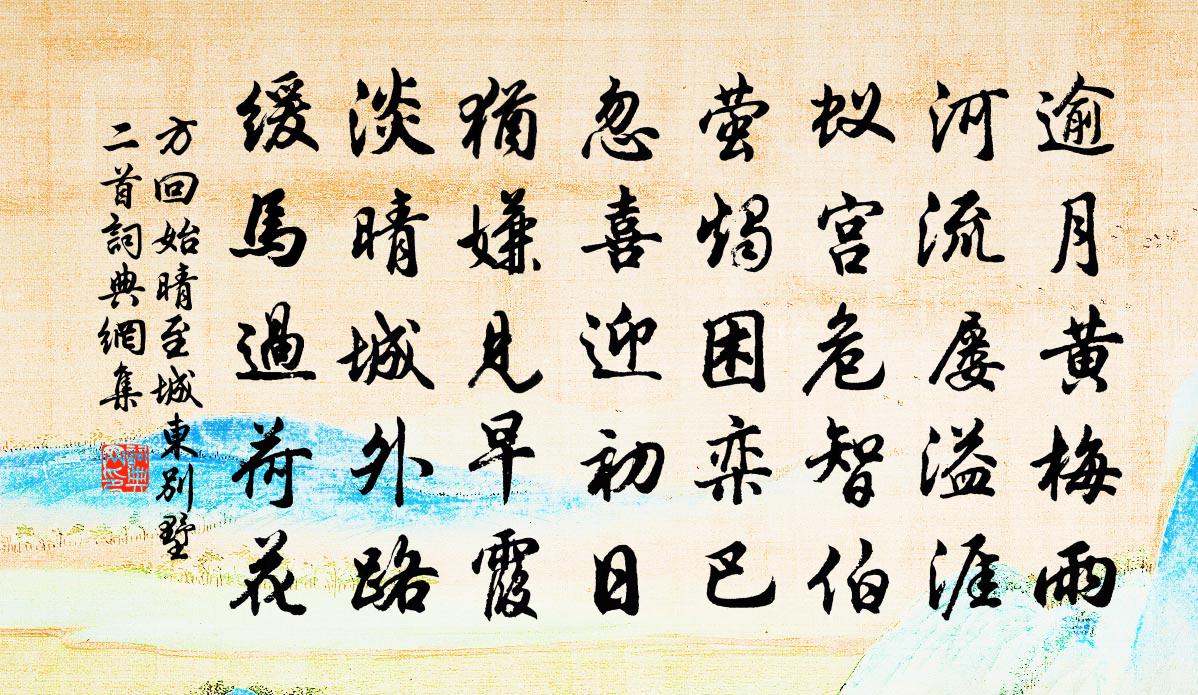 逾月黄梅雨
河流屡溢涯
蚁宫危智伯
萤燭困栾巴
忽喜迎初日
猶嫌見早霞
淡晴城外路
緩馬過荷花
方回始晴至城東别墅
二首詞典網集